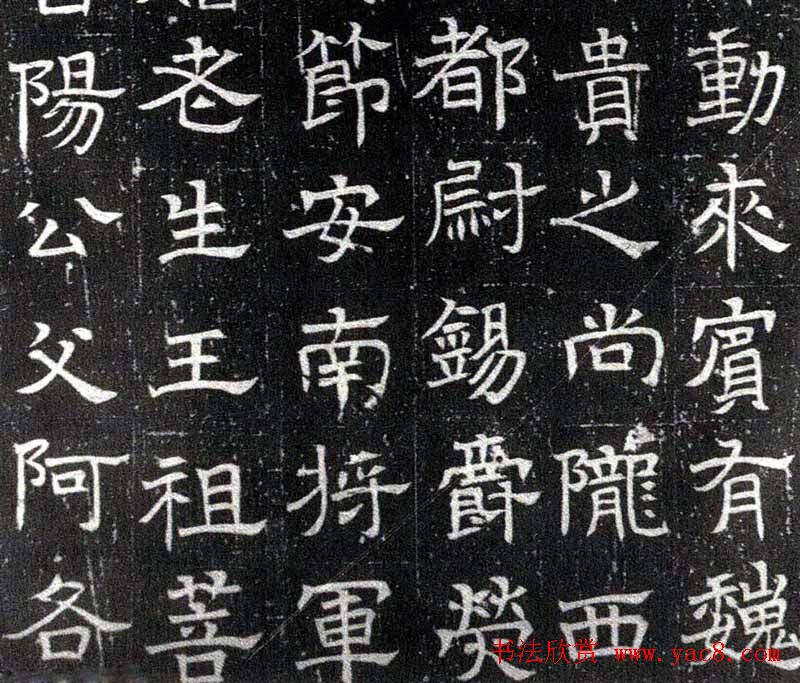 動來賓有魏
貴之尚隴西
都尉錫爵滎
節安南將軍
老生王祖菩
陽公父阿各
书法欣赏 www.yac8.com